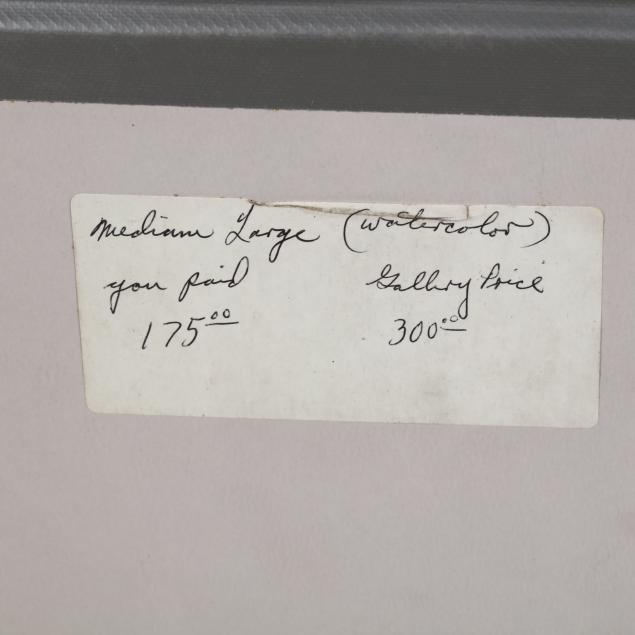 Medium Large (watercolor)
you paid Gallery Price
175.00 300.00